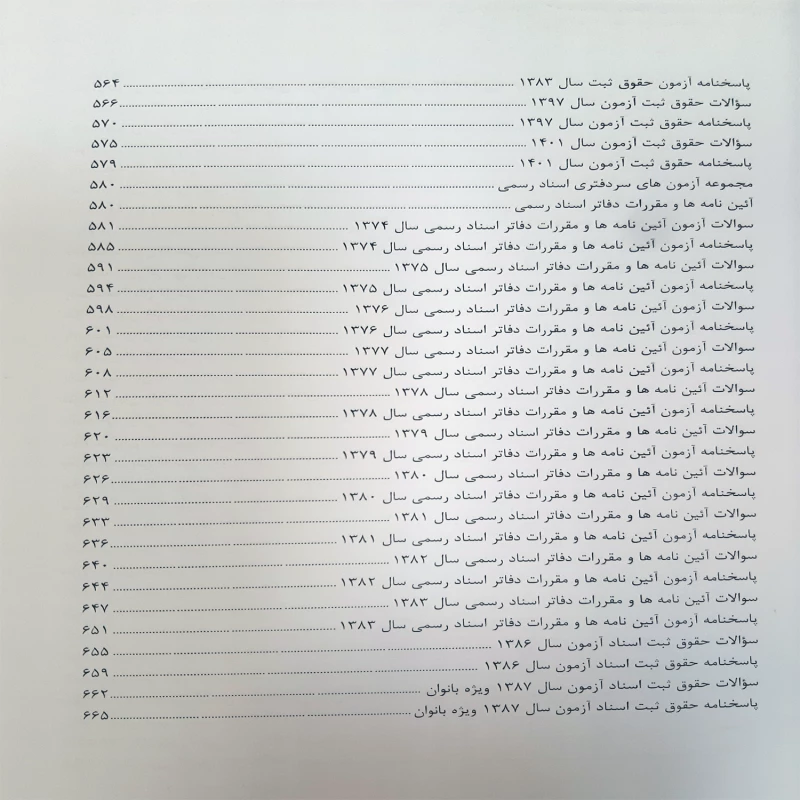 پاسخنامه آزمون حقوق ثبت سال ۱۳۸۳ ........ ۵۶۴
سؤالات حقوق ثبت آزمون سال ۱۳۹۷ ........ ۵۶۶
پاسخنامه حقوق ثبت آزمون سال ۱۳۹۷ ........ ۵۷۰
سؤالات حقوق ثبت آزمون سال ۱۴۰۱ ........ ۵۷۵
پاسخنامه حقوق ثبت آزمون سال ۱۴۰۱ ........ ۵۷۹
مجموعه آزمون های سردفتری اسناد رسمی ........ ۵۸۰
آئین نامه ها و مقررات دفاتر اسناد رسمی ........ ۵۸۰
سوالات آزمون آئین نامه ها و مقررات دفاتر اسناد رسمی سال ۱۳۷۴ ........ ۵۸۱
پاسخنامه آزمون آئین نامه ها و مقررات دفاتر اسناد رسمی سال ۱۳۷۴ ........ ۵۸۵
سوالات آئین نامه ها و مقررات دفاتر اسناد رسمی سال ۱۳۷۵ ........ ۵۹۱
پاسخنامه آزمون آئین نامه ها و مقررات دفاتر اسناد رسمی سال ۱۳۷۵ ........ ۵۹۴
سوالات آزمون آئین نامه ها و مقررات دفاتر اسناد رسمی سال ۱۳۷۶ ........ ۵۹۸
پاسخنامه آزمون آئین نامه ها و مقررات دفاتر اسناد رسمی سال ۱۳۷۶ ........ ۶۰۱
سوالات آزمون آئین نامه ها و مقررات دفاتر اسناد رسمی سال ۱۳۷۷ ........ ۶۰۵
پاسخنامه آزمون آئین نامه ها و مقررات دفاتر اسناد رسمی سال ۱۳۷۷ ........ ۶۰۸
سوالات آئین نامه ها و مقررات دفاتر اسناد رسمی سال ۱۳۷۸ ........ ۶۱۲
پاسخنامه آزمون آئین نامه ها و مقررات دفاتر اسناد رسمی سال ۱۳۷۸ ........ ۶۱۶
سوالات آئین نامه ها و مقررات دفاتر اسناد رسمی سال ۱۳۷۹ ........ ۶۲۰
پاسخنامه آزمون آئین نامه ها و مقررات دفاتر اسناد رسمی سال ۱۳۷۹ ........ ۶۲۳
سوالات آئین نامه ها و مقررات دفاتر اسناد رسمی سال ۱۳۸۰ ........ ۶۲۶
پاسخنامه آزمون آئین نامه ها و مقررات دفاتر اسناد رسمی سال ۱۳۸۰ ........ ۶۲۹
سوالات آئین نامه ها و مقررات دفاتر اسناد رسمی سال ۱۳۸۱ ........ ۶۳۳
پاسخنامه آزمون آئین نامه ها و مقررات دفاتر اسناد رسمی سال ۱۳۸۱ ........ ۶۳۶
سوالات آئین نامه ها و مقررات دفاتر اسناد رسمی سال ۱۳۸۲ ........ ۶۴۰
پاسخنامه آزمون آئین نامه ها و مقررات دفاتر اسناد رسمی سال ۱۳۸۲ ........ ۶۴۴
سوالات آئین نامه ها و مقررات دفاتر اسناد رسمی سال ۱۳۸۳ ........ ۶۴۷
پاسخنامه آزمون آئین نامه ها و مقررات دفاتر اسناد رسمی سال ۱۳۸۳ ........ ۶۵۱
سؤالات حقوق ثبت اسناد آزمون سال ۱۳۸۶ ........ ۶۵۵
پاسخنامه حقوق ثبت اسناد آزمون سال ۱۳۸۶ ........ ۶۵۹
سؤالات حقوق ثبت اسناد آزمون سال ۱۳۸۷ ویژه بانوان ........ ۶۶۲
پاسخنامه حقوق ثبت اسناد آزمون سال ۱۳۸۷ ویژه بانوان ........ ۶۶۵